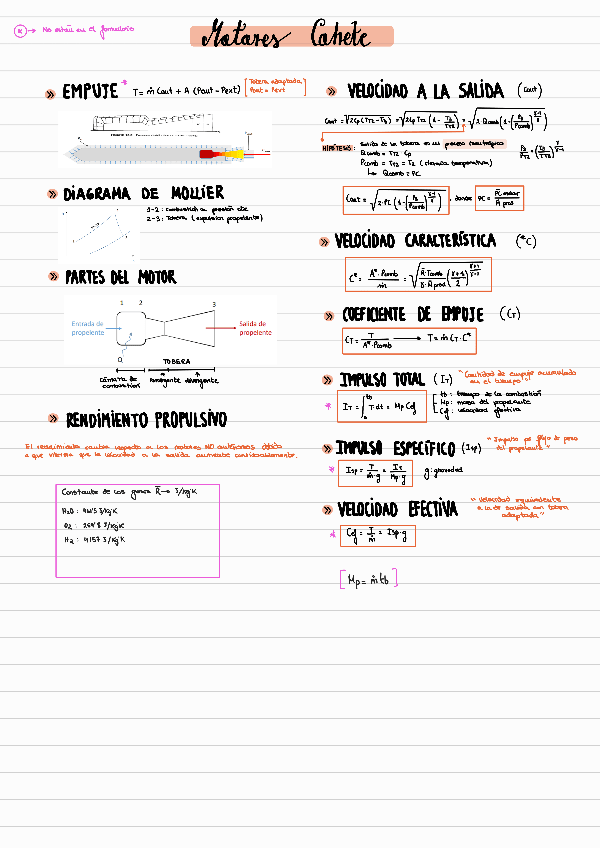 * → No están en el formulario
Motores Cohete
» EMPUJE * T = ṁ Cout + A (Pout - Pext) [Tobera adaptada Pout = Pext]
» DIAGRAMA DE MOLLIER
1-2: combustión a presión cte
2-3: Tobera (expansión propelente)
» PARTES DEL MOTOR
1 2 3
Entrada de propelente
Salida de propelente
TOBERA
Cámara de combustión
convergente divergente
» RENDIMIENTO PROPULSIVO
El rendimiento cambia respecto a los motores NO autónomos debido
a que vemos que la velocidad a la salida aumenta considerablemente.
Constante de los gases R → J/kg K
H2O: 
O2: 
H2: 4157 J/kg K
» VELOCIDAD A LA SALIDA (Cout)
HIPÓTESIS: Salida de la tobera es un proceso isentrópico
Qcomb = Tt2 Cp
Pcomb = Pt2 = P2 (cámara
↳ Qcomb = PC
, donde PC =
» VELOCIDAD CARACTERÍSTICA (*C)
C* = A*·Pcomb / ṁ =
» COEFICIENTE DE EMPUJE (CT)
CT = T / A*·Pcomb → T = ṁ CT · C*
» IMPULSO TOTAL (IT) "Cantidad de empuje acumulado en el tiempo"
* IT = ∫ T dt = Mp Cef
tb: tiempo de la combustión
Mp: masa del propelente
Cef: velocidad efectiva
» IMPULSO ESPECÍFICO (Isp) "Impulso por flujo de peso del propelente"
* Isp = T / ṁ·g = IT / Mp·g g: gravedad
» VELOCIDAD EFECTIVA "Velocidad equivalente a la de salida con tobera adaptada"
* Cef = T / ṁ = Isp·g
[Mp = ṁ tb]